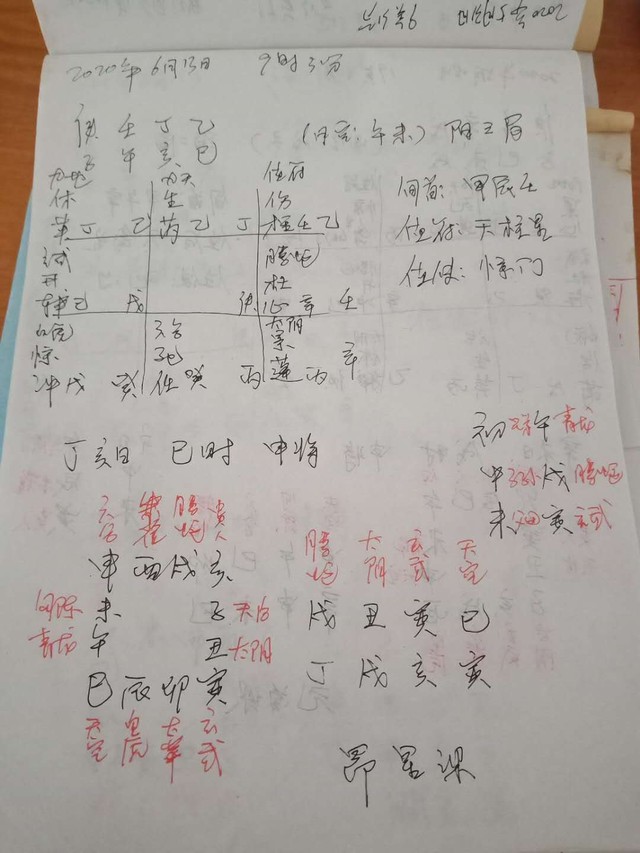 2020年6月13日 9时31分
庚 壬 丁 乙
子 午 亥 巳
(日空:午未) 阳三局
九地 九天 值符
休 生 伤
英 丁 己 芮 乙 丁 柱 壬 乙
旬首:甲辰壬
值符:天柱星
值使:惊门
玄武 腾蛇
开 杜
辅己 戊 庚 心 辛 壬
白虎 六合 太阴
惊 死 景
冲 戊 癸 任 癸 丙 蓬 丙 辛
丁亥日 巳时 申将
初 午 青龙
中 戌 腾蛇
末 寅 玄武
六合 腾蛇 贵人
申 酉 戌 亥
勾陈 未 子 天后
青龙 午 丑 太阴
巳 辰 卯 寅
天空 白虎 太常 玄武
腾蛇 太阴 玄武 天空
戌 丑 寅 巳
丁 戌 亥 寅
昴星课